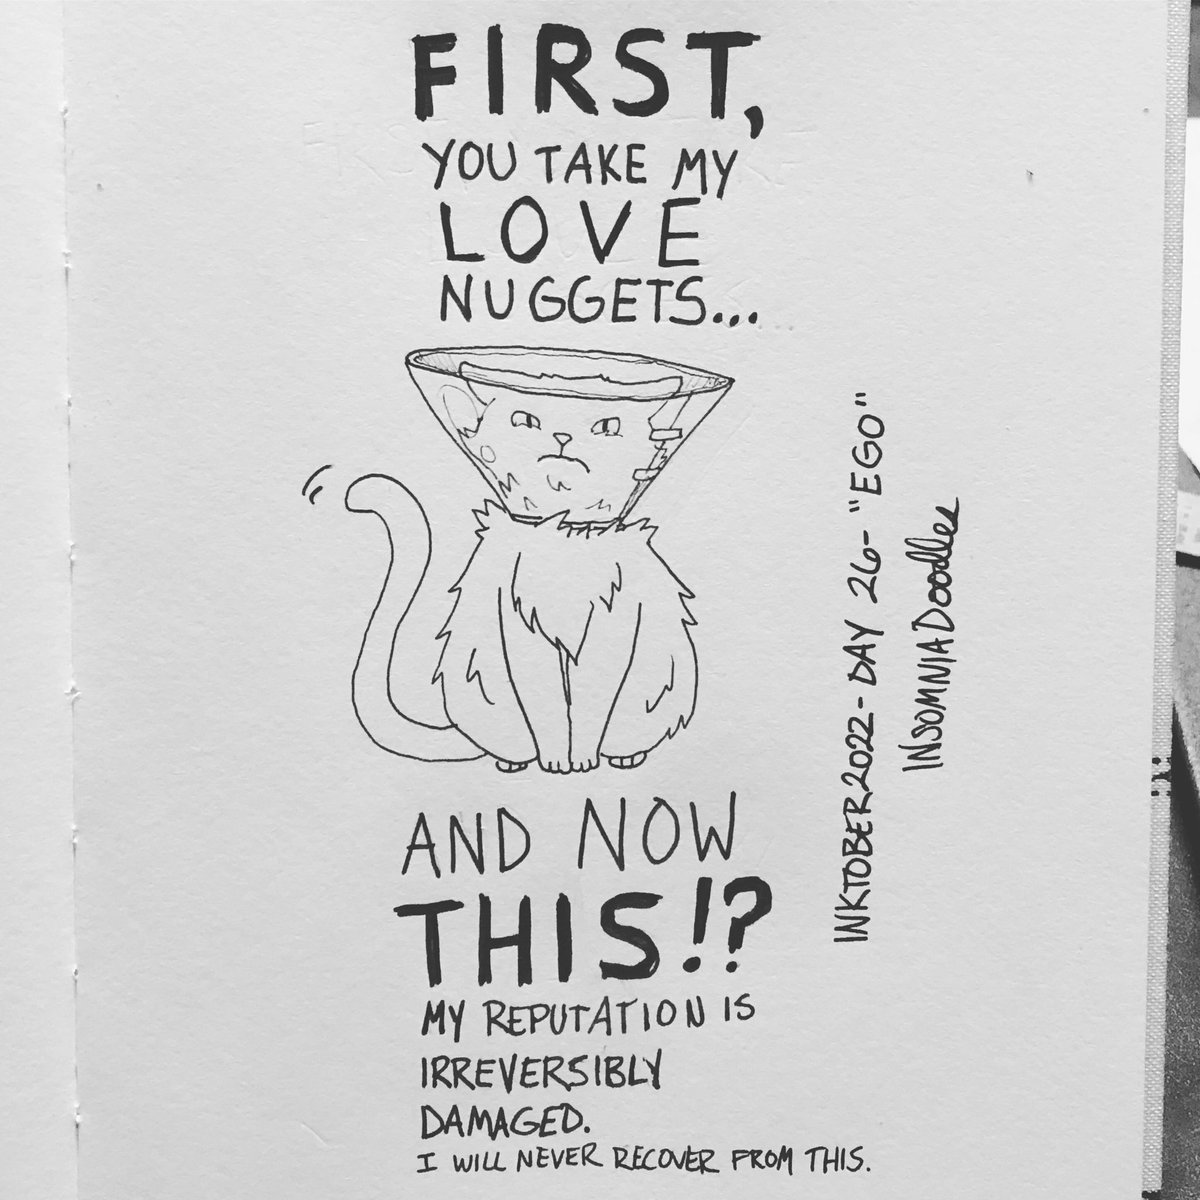 FIRST,
YOU TAKE MY
LOVE
NUGGETS...
AND NOW
THIS!?
MY REPUTATION IS
IRREVERSIBLY
DAMAGED.
I WILL NEVER RECOVER FROM THIS.
INKTOBER2022-DAY 26-"EGO"
INSOMNIADoodles